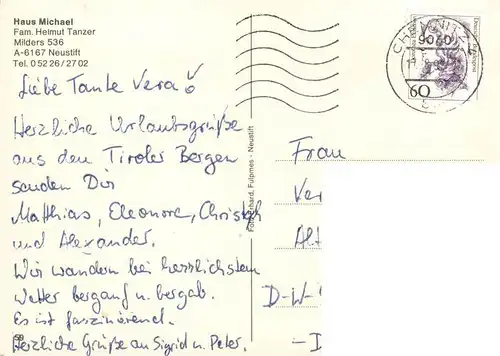 Haus Michael
Fam. Helmut Tanzer
Milders 536
A-6167 Neustift
Tel. 0 52 26 / 27 02
Liebe Tante Vera
Herzliche Urlaubsgrüße
aus den Tiroler Bergen
senden Dir
Matthias, Eleonore, Christoph
und Alexander.
Wir wandern bei herrlichstem
Wetter bergauf u. bergab.
Es ist faszinierend.
Herzliche Grüße an Sigrid u. Peter.
Foto Erhard, Fulpmes - Neustift
CHEMNITZ
9040
60
Frau
Ver
Alt
D-W-